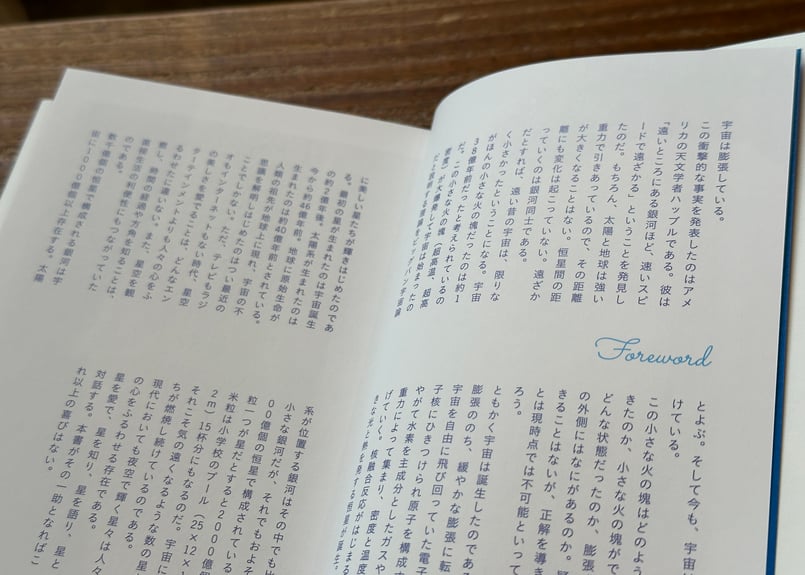 宇宙は膨張している。
この衝撃的な事実を発表したのはアメ
リカの天文学者ハッブルである。彼は
「遠いところにある銀河ほど、速いスピ
ードで遠ざかる」ということを発見し
たのだ。もちろん、太陽と地球は強い
重力で引きあっているので、その距離
が大きくなることはない。恒星間の距
離にも変化は起こっていない。遠ざか
っていくのは銀河同士である。
だとすれば、遠い昔の宇宙は、限りな
く小さかったということになる。宇宙
がほんの小さな火の塊だったのは約1
38億年前だったと考えられているの
だ。この小さな火の塊（超高温、超高
密度）が大爆発して宇宙は始まったの
だと説明する理論をビッグバン宇宙論
Foreword
とよぶ。そして今も、宇宙は
けている。
この小さな火の塊はどのよう
きたのか、小さな火の塊がで
どんな状態だったのか、膨張
の外側にはなにがあるのか。疑
きることはないが、正解を導き
とは現時点では不可能といって
ろう。
ともかく宇宙は誕生したのである
膨張ののち、緩やかな膨張に転
宇宙を自由に飛び回っていた電子
子核にひきつけられ原子を構成す
やがて水素を主成分としたガスや
重力によって集まり、密度と温度
げていく。核融合反応がはじまる
きな光と熱を発する恒星が誕生
に美しい星たちが輝きはじめたのであ
る。最初の星が生まれたのは宇宙誕生
の約2億年後。太陽系が生まれたのは
今から約46億年前。地球に原始生命が
生まれたのは約40億年前とされている。
人類の祖先が地球上に現れ、宇宙の不
思議を解明しはじめたのはつい最近の
ことでしかない。ただ、テレビもラジ
オもインターネットもない時代、星空
の美しさを愛でることは、どんなエン
ターテインメントよりも人々の心をふ
るわせたに違いない。また、星空を観
察し、時間の経過や方角を知ることは、
直接生活の利便性にもつながっていた
のである。
数千億個の恒星で構成される銀河は宇
宙に1000億個以上存在する。太陽
系が位置する銀河はその中でも比
小さな銀河だが、それでもおよそ
00億個の恒星で構成されている
粒一つが星だとすると2000億個
米粒は小学校のプール（25×12×1
2m）15杯分にもなるのだ。宇宙に
それこそ気の遠くなるような数の星
ちが燃焼し続けているのである。
現代においても夜空で輝く星々は人々
の心をふるわせる存在である。
星を愛で、星を知り、星を語り、星と
対話する。本書がその一助となればこ
れ以上の喜びはない。